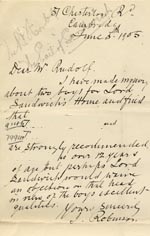 51 Chesterton Rd.
Cambridge
June 5th 1905
Dear Mr Rudolf
I have made inquiry
about two boys for Lord
Sandwich's Home and find
that
are strongly recommended
is over 12 years
of age but perhaps Lord
Sandwich would waive
an objection on that head
in view of the boy's excellent
qualities.
Yours sincerely
Robinson